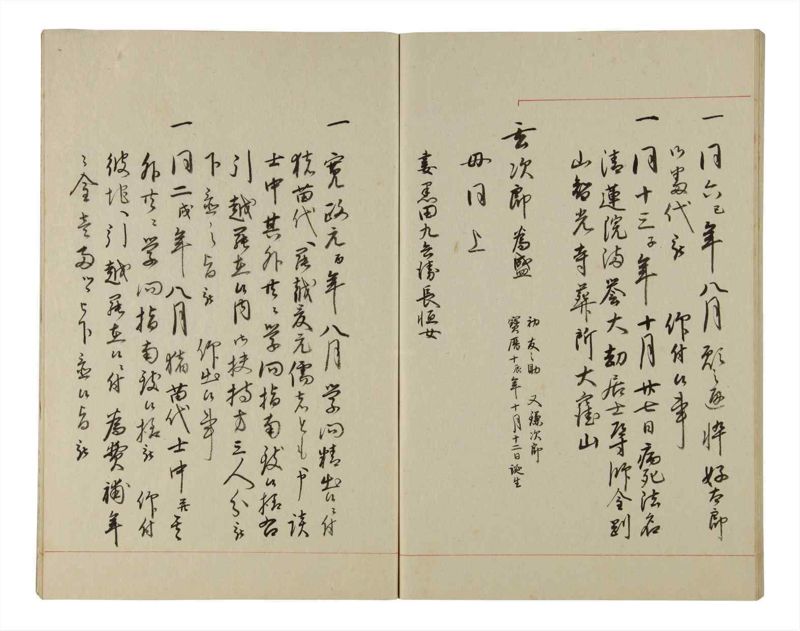 一同六巳年八月願之通悴好太郎
御番代被 仰付候事
一同十三子年十月廿七日病死法名
清蓮院誉大劫居士導師金剛
山智光寺葬所大窪山
次郎為盛
初友之助 又鎌次郎
寛暦十辰年十月十二日誕生
母同上
妻黒田九兵衛長恒女
一寛政元酉年八月学問精出候ニ付
猪苗代江罷越応元儒者とも申談
士中其外共ニ学問指南致候様
引越罷在候内御扶持方三人分被
下置之旨被 仰出候事
一同二戌年八月猪苗代士中並
外共ニ学問指南致候様被 仰付
彼地江引越罷在候ニ付為費補年
々金壱両ツヽ下置候旨被